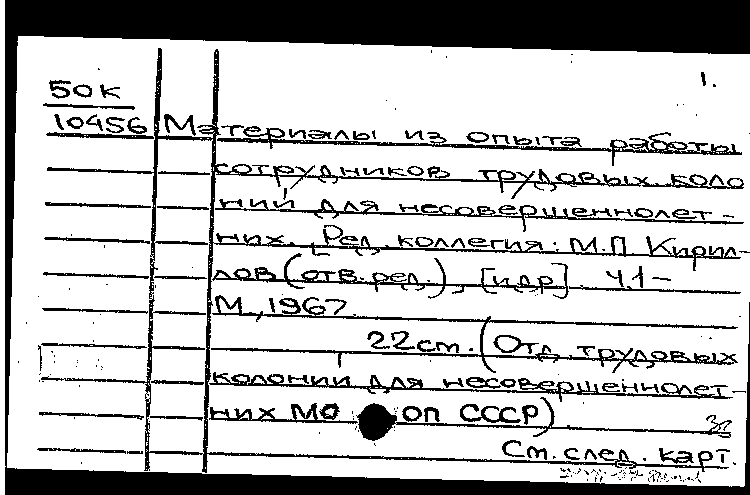 1.
50к
10456 Материалы из опыта работы
сотрудников трудовых коло
ний для несовершеннолет-
них. [Ред. коллегия: М.П Кирил-
лов (отв. ред.), [и др]. Ч.1-
М., 1967.
22 см. (Отд. трудовых
колоний для несовершеннолет-
них МО ОП СССР)
См. след. карт.